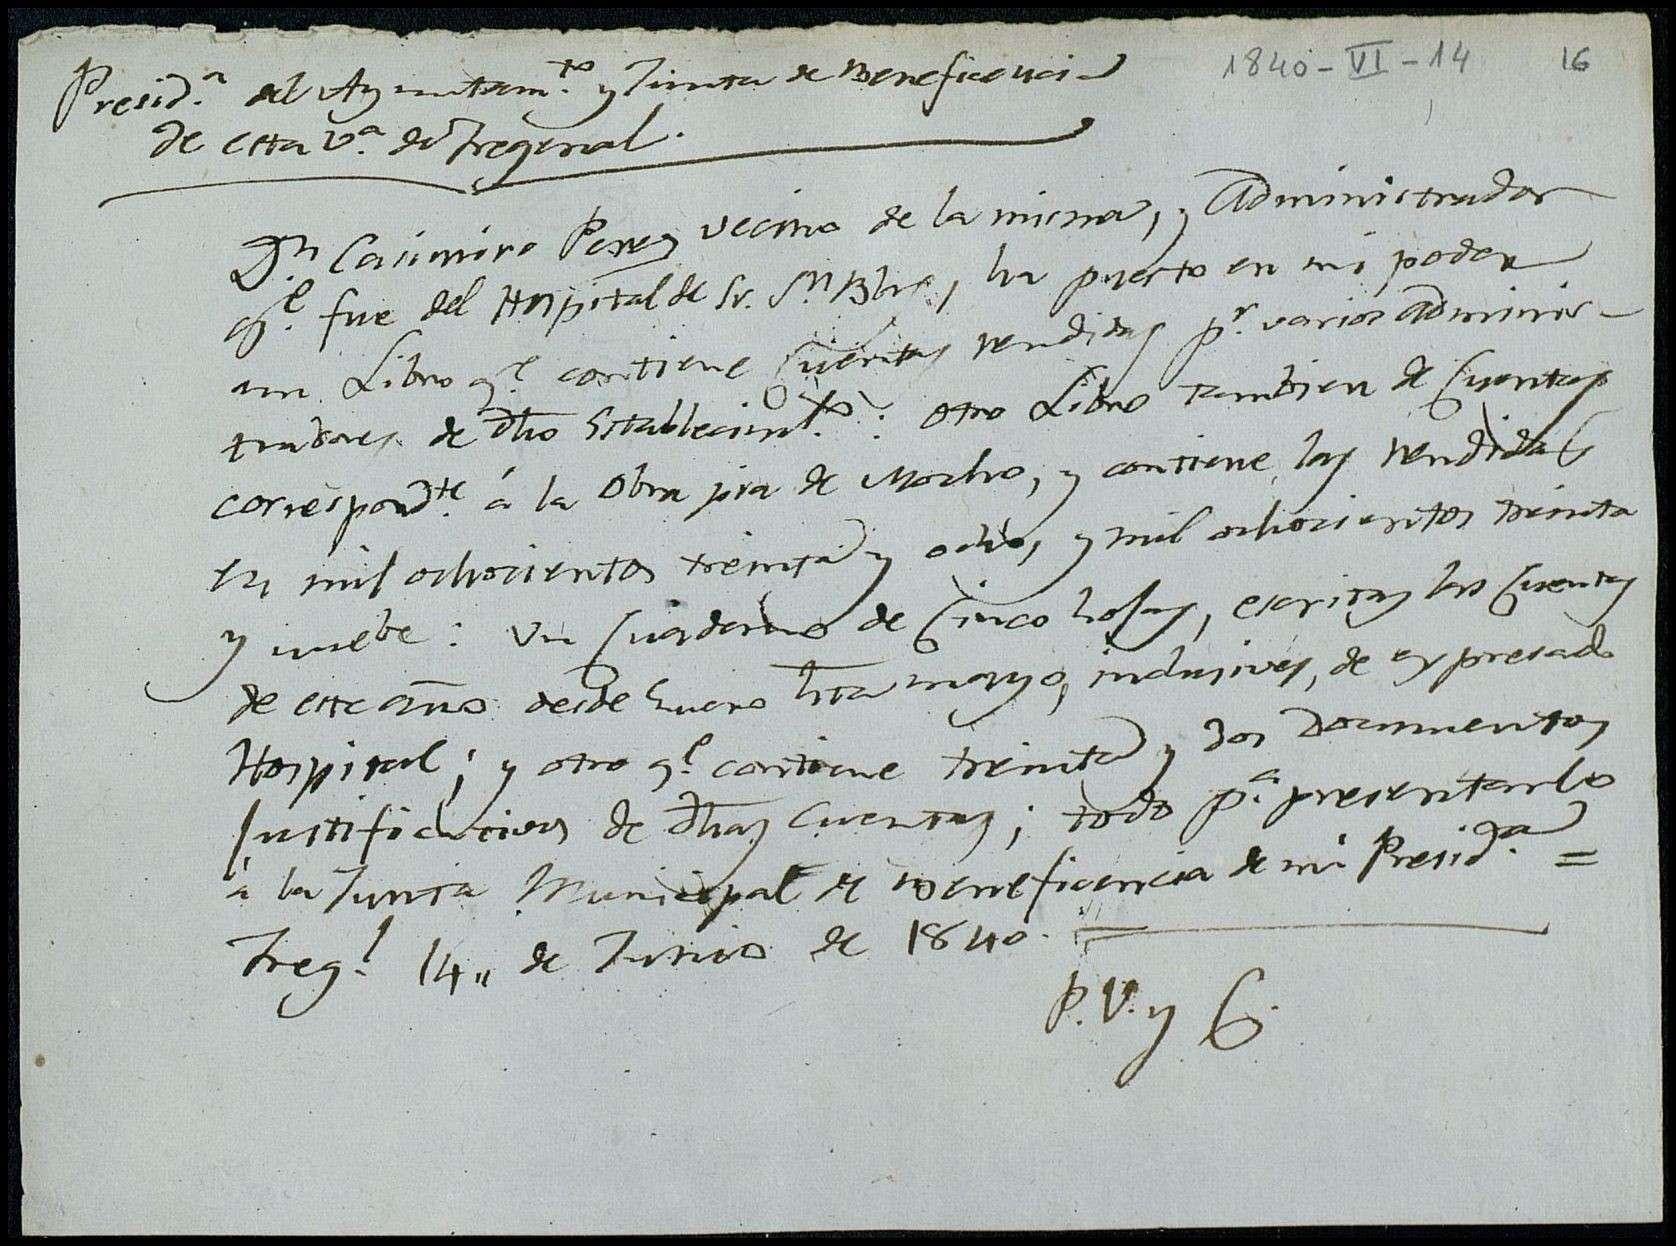 1840-VI-14 16
Presid.ª del Ayuntam.to y Junta de Beneficencia
de esta V.ª de Fregenal.
D.n Casimiro Perez vecino de la misma, y Administrador
q.e fue del Hospital de Sr. S.n Blas, ha puesto en mi poder
un Libro q.e contiene Cuentas rendidas p.r varios Adminis-
tradores de dho Establecim.to: otro Libro tambien de Cuentas
correspond.te á la Obra pia de Mocho, y contiene las rendidas
en mil ochocientos treinta y ocho, y mil ochocientos treinta
y nuebe: Un Cuaderno de Cinco hojas, escritas las Cuentas
de este año desde Enero hta mayo, inclusives, de expresado
Hospital; y otro q.e contiene treinta y dos Documentos
Justificativos de dhas Cuentas; todo p.ª presentarlo
á la Junta Municipal de Beneficencia de mi Presid.ª =
Freg.l 14,, de Junio de 1840. =
P. V. y C.